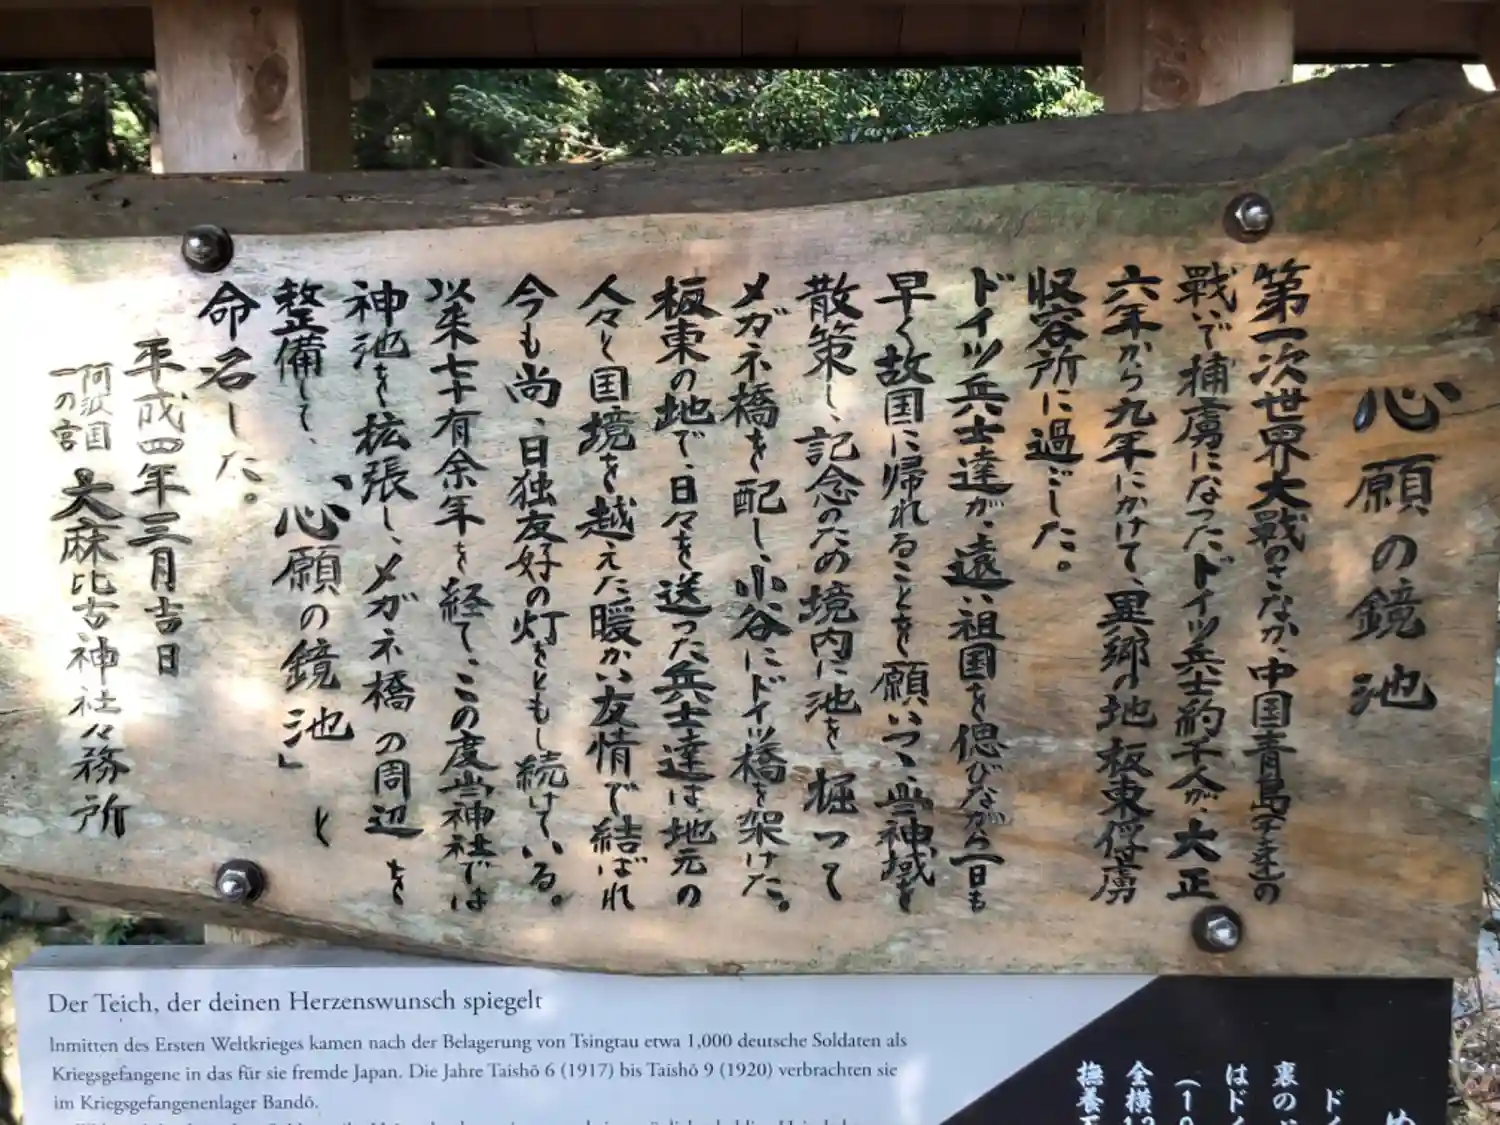 心願の鏡池
第一次世界大戦のさなか、中国青島(チンタオ)の
戦いで捕虜になったドイツ兵士約千人が、大正
六年から九年にかけて、異郷の地板東俘虜
収容所に過ごした。
ドイツ兵士達が、遠い祖国を偲びながら一日も
早く故国に帰れることを願いつつ、当神域を
散策し、記念のため境内に池を掘って
メガネ橋を配し、小谷にドイツ橋を架けた。
板東の地で、日々を送った兵士達は、地元の
人々と国境を越えた暖かい友情で結ばれ
今も尚、日独友好の灯をともし続けている。
以来七十有余年を経て、この度当神社では
神池を拡張し、メガネ橋の周辺を
整備して、「心願の鏡池」と
命名した。
平成四年三月吉日
阿波国
一の宮
大麻比古神社々務所
Der Teich, der deinen Herzenswunsch spiegelt
Inmitten des Ersten Weltkrieges kamen nach der Belagerung von Tsingtau etwa 1,000 deutsche Soldaten als
Kriegsgefangene in das für sie fremde Japan. Die Jahre Taishō 6 (1917) bis Taishō 9 (1920) verbrachten sie
im Kriegsgefangenenlager Bandō.
め
ドイ
裏のド
はドイ
(19
全横12
撫養